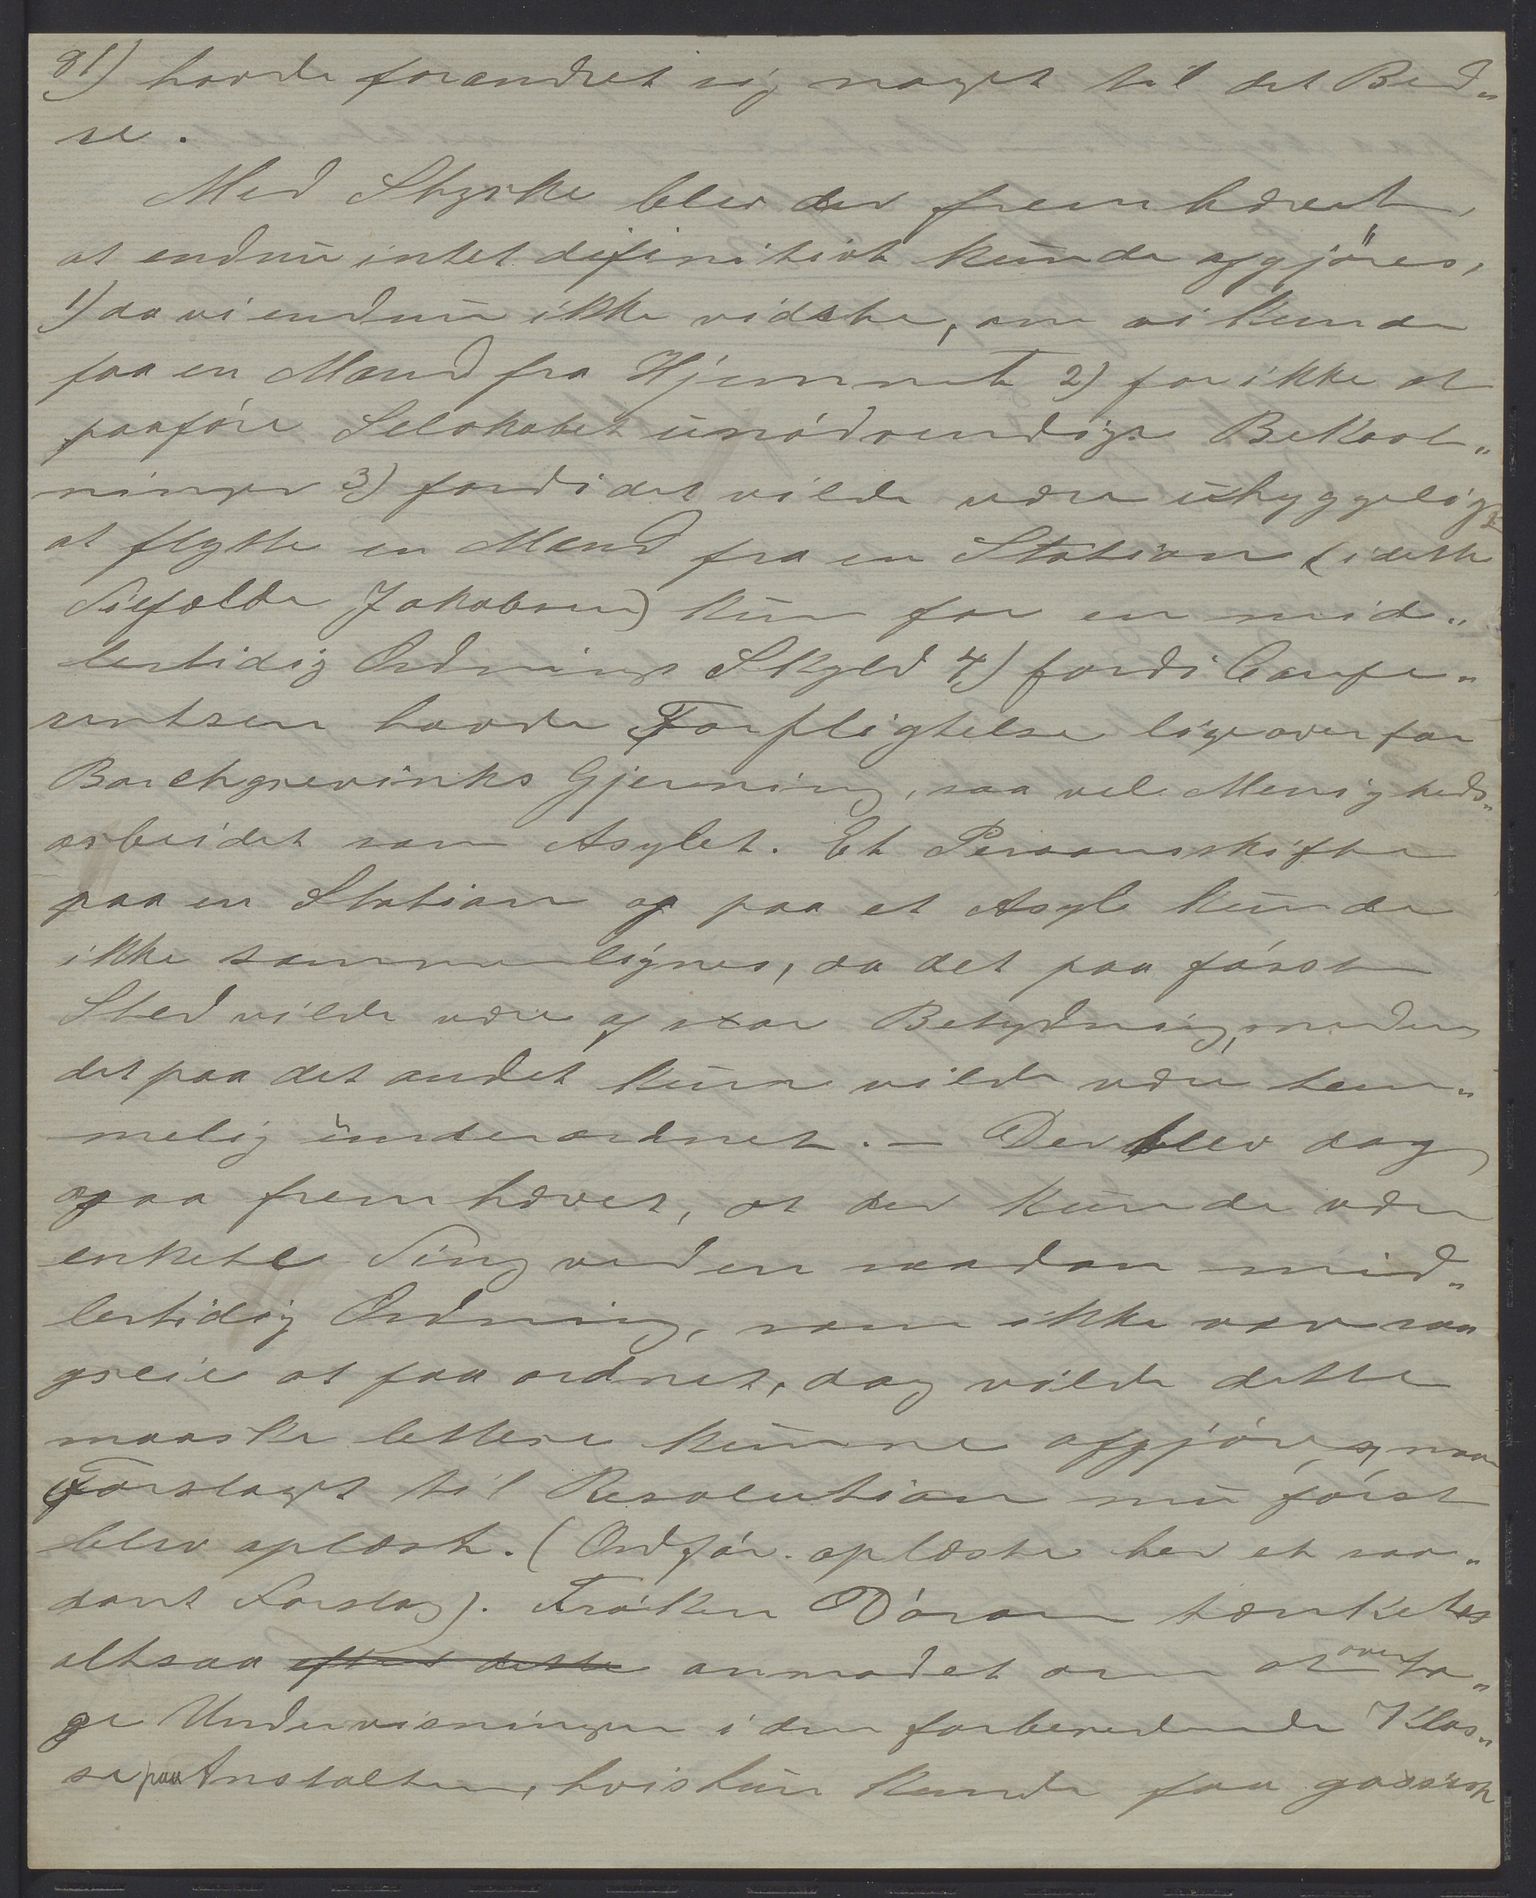 81) havde forandret sig noget til det Bed„
re.
Med Styrke blev der fremhævet,
at endnu intet difinitivt kunde afgjöres,
1) da vi endnu ikke vidste, om vi kunde
faa en Mand fra Hjemmet 2) for ikke at
paaføre Selskabet unødvendige Bekost„
ninger 3) fordi det vilde være uhyggeligt
at flytte en Mand fra en Station (i dette
Tilfælde Jakobsen) kun for en mid„
lertidig Ordnings Skyld 4) fordi Confe„
rentsen havde Forpligtelse ligeoverfor
Borchgrevinks Gjerning, saa vel Menigheds„
arbeidet som Asylet. Et Personskifte
paa en Station og paa et Asyl kunde
ikke sammenlignes, da det paa første
Sted vilde være af stor Betydning, medens
det paa det andet kun vilde være tem„
melig underordnet. — Der blev dog
ogsaa fremhævet, at der kunde være
enkelte Ting ved en saadan mid„
lertidig Ordning, som ikke var saa
greie at faa ordnet, dog vilde dette
maaske lettere kunne afgjøres, naar
Forslaget til Resolution nu først
blev oplæst. (Ordfør. oplæste her et saa„
dant Forslag). Frøken Dórom tænktes
altsaa efter dette anmodet om at overta„
ge Undervisningen i den forberedende Klas„
se paa Anstalten, hvis hun kunde faa gassisk